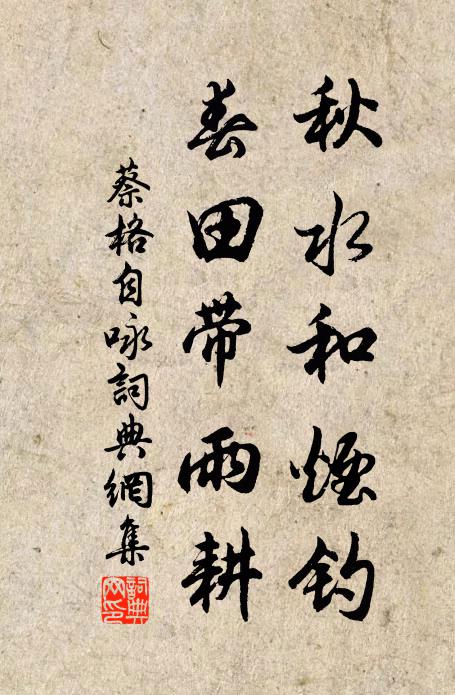 秋水和煙釣
春田带雨耕
蔡格自咏詞典網集
詞典網印